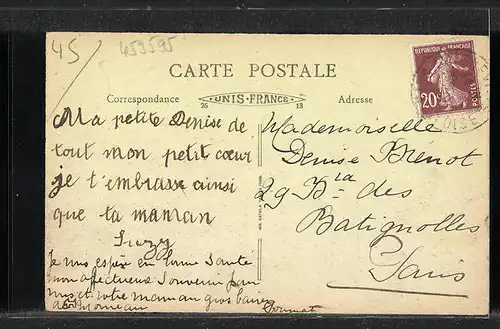 45
453595
CARTE POSTALE
RÉPUBLIQUE FRANÇAISE
20c
POSTES
Correspondance
26 UNIS-FRANCE 13
Adresse
Ma petite Denise de
tout mon petit cœur
je t'embrasse ainsi
que ta maman
Suzy
je vous espère en bonne santé
mon affectueux souvenir pour
vous et votre maman gros baisers
Mademoiselle
Denise Brenot
29 Bd des
Batignolles
Paris